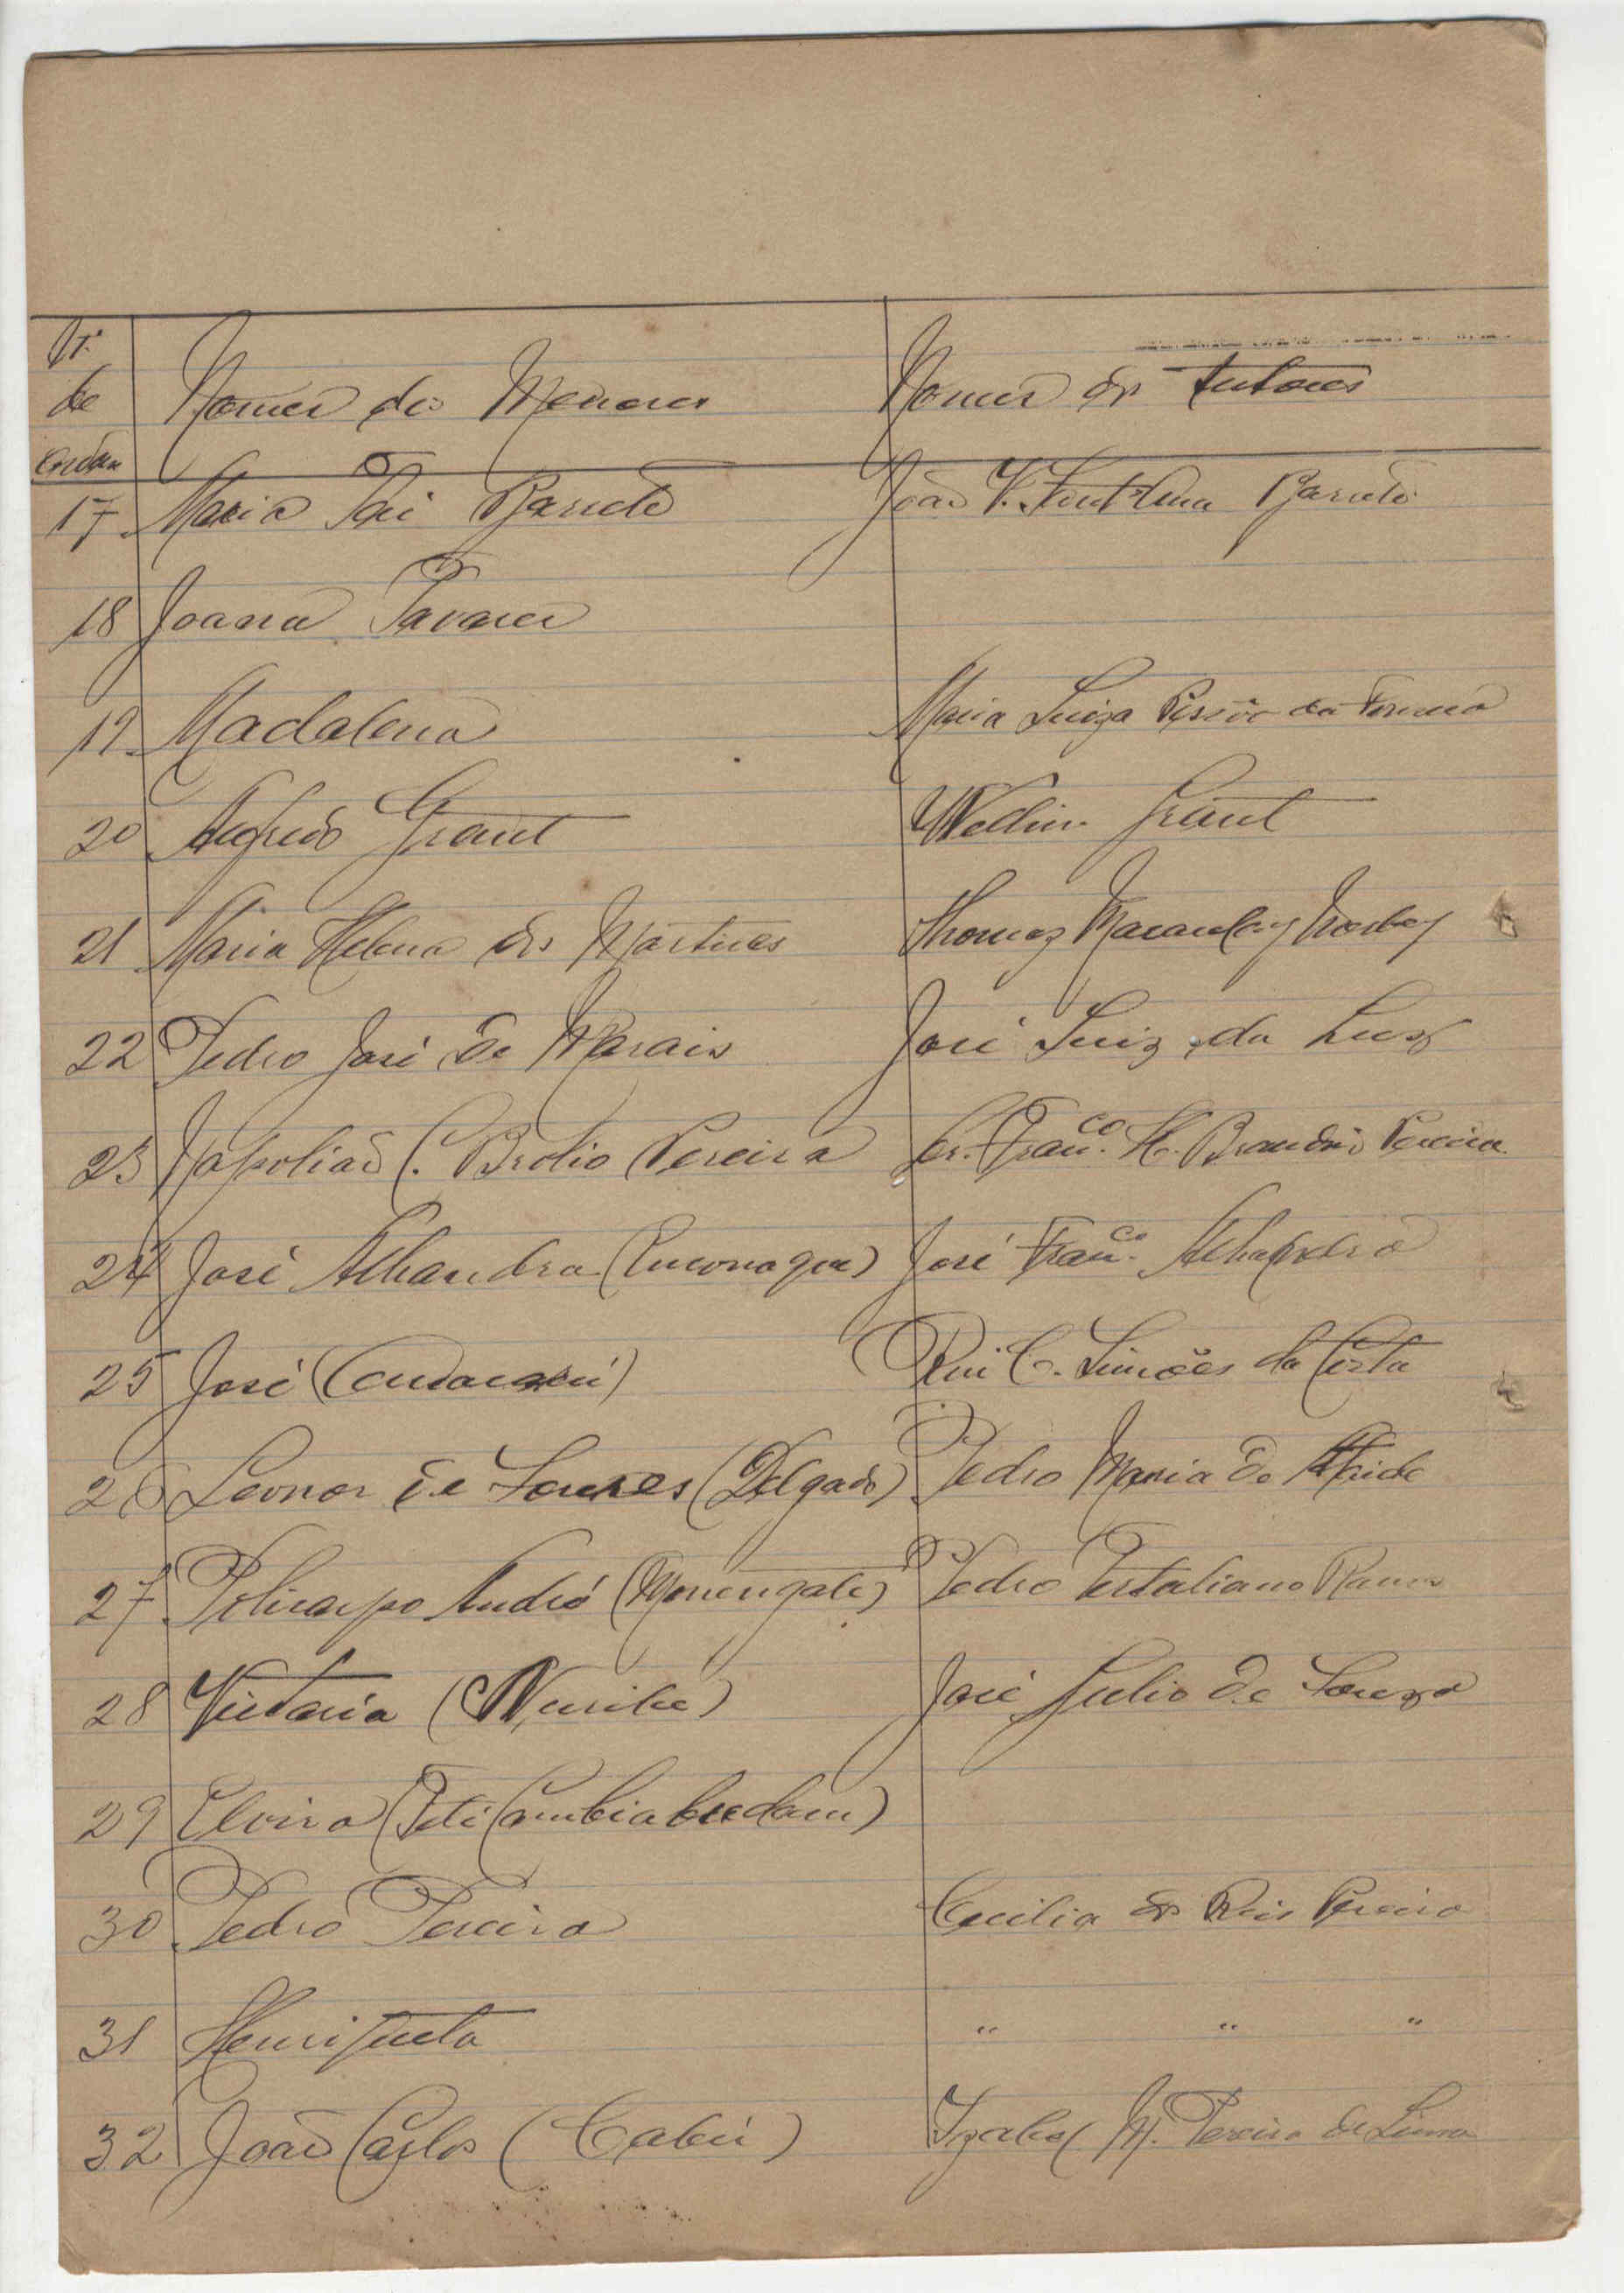 Nº
de
ordem
Nomes dos Menores Nomes dos Tutores
17 Maria José Barreto João V. Barreto
18 Joana Tavares
19 Madalena Maria Luiza da
20 Alfredo Grant Grant
21 Maria Helena dos Martires Thomaz Macaulay
22 Pedro José de Morais José Luiz da Luz
23 Napolião C. Brotio Pereira Franco. H. Brandão Pereira
24 José Alhandra José Franco. Alhandra
25 José Rui C. Simões da Costa
26 Leonor de Soures (Delgado) Pedro Maria de Ataide
27 Policarpo André Pedro Tertuliano Ramos
28 Victoria José Julio de Souza
29 Elvira
30 Pedro Pereira Cecilia dos Reis Pereira
31 Henriqueta " " "
32 João Carlos (Cabú) Izabel M. Pereira de Lima